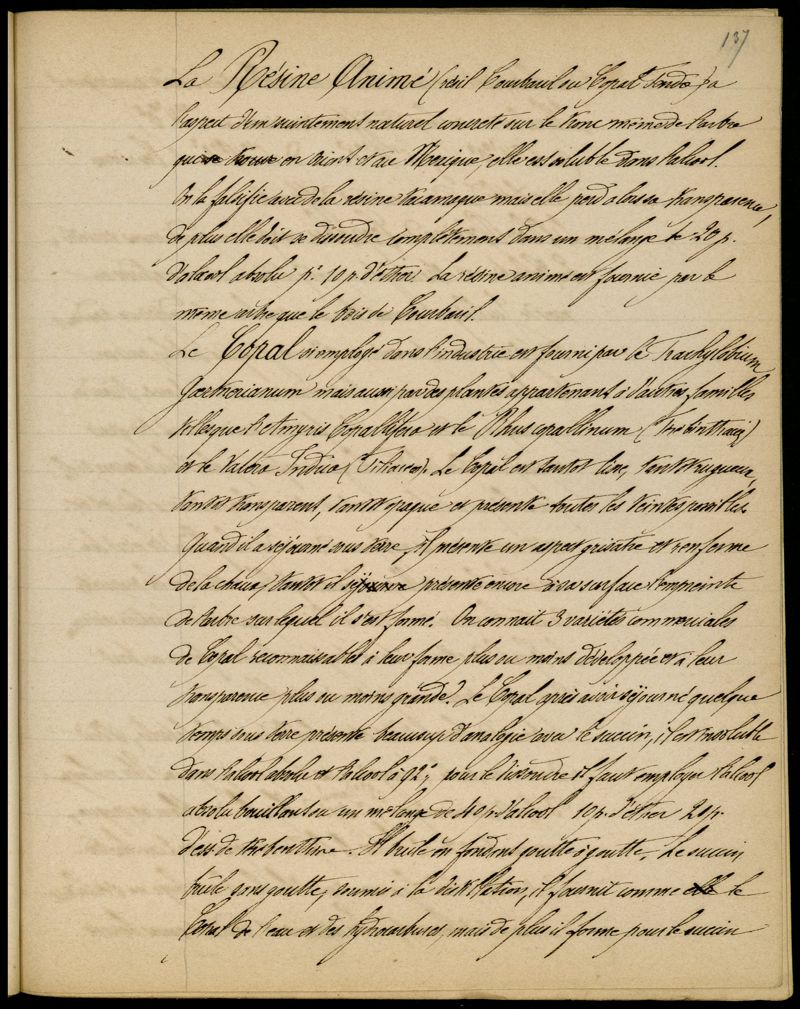 137
La Résine Animé (résil Courbaril ou Copal Tendre) a
l'aspect d'un suintement naturel concreté sur le tronc même de l'arbre
qui se trouve en et au Mexique, elle est soluble dans l'alcool.
On la falsifie avec de la résine tacamaque mais elle perd alors sa transparence,
de plus elle doit se dissoudre complètement dans un mélange de 20 p.
d'alcool absolu pr 10 p. d'éther. La résine animé est fournie par le
même arbre que le bois de Courbaril.
Le Copal si employé dans l'industrie est fourni par le Trachylobium
Gærtnerianum mais aussi par des plantes appartenant à d'autres familles
telles que l'Amyris Copallifera et le Rhus copallinum (Térébinthacées)
et le Valeria Indica (Tiliacées). Le Copal est tantôt lisse, tantôt rugueux,
tantôt transparent, tantôt opaque et présente toutes les teintes possibles.
Quand il a séjourné sous terre, il présente un aspect grisâtre et renferme
de la chaux, tantôt il séjourne présente encore à sa surface l'empreinte
de l'arbre sur lequel il s'est formé. On connait 3 variétés commerciales
de Copal reconnaissables à leur forme plus ou moins développée et à leur
transparence plus ou moins grande. Le Copal après avoir séjourné quelque
temps sous terre présente beaucoup d'analogie avec le succin, il est insoluble
dans l'alcool absolu et l'alcool à 92°, pour le dissoudre il faut employer l'alcool
absolu bouillant ou un mélange de 40 p. d'alcool 10 p. d'éther 20 p.
d'ess de térébenthine. Il brule en fondant goutte à goutte. Le succin
brûle sans goutte, soumis à la distillation, il fournit comme elle le
Copal de l'eau et des hydrocarbures, mais de plus il forme pour le succin